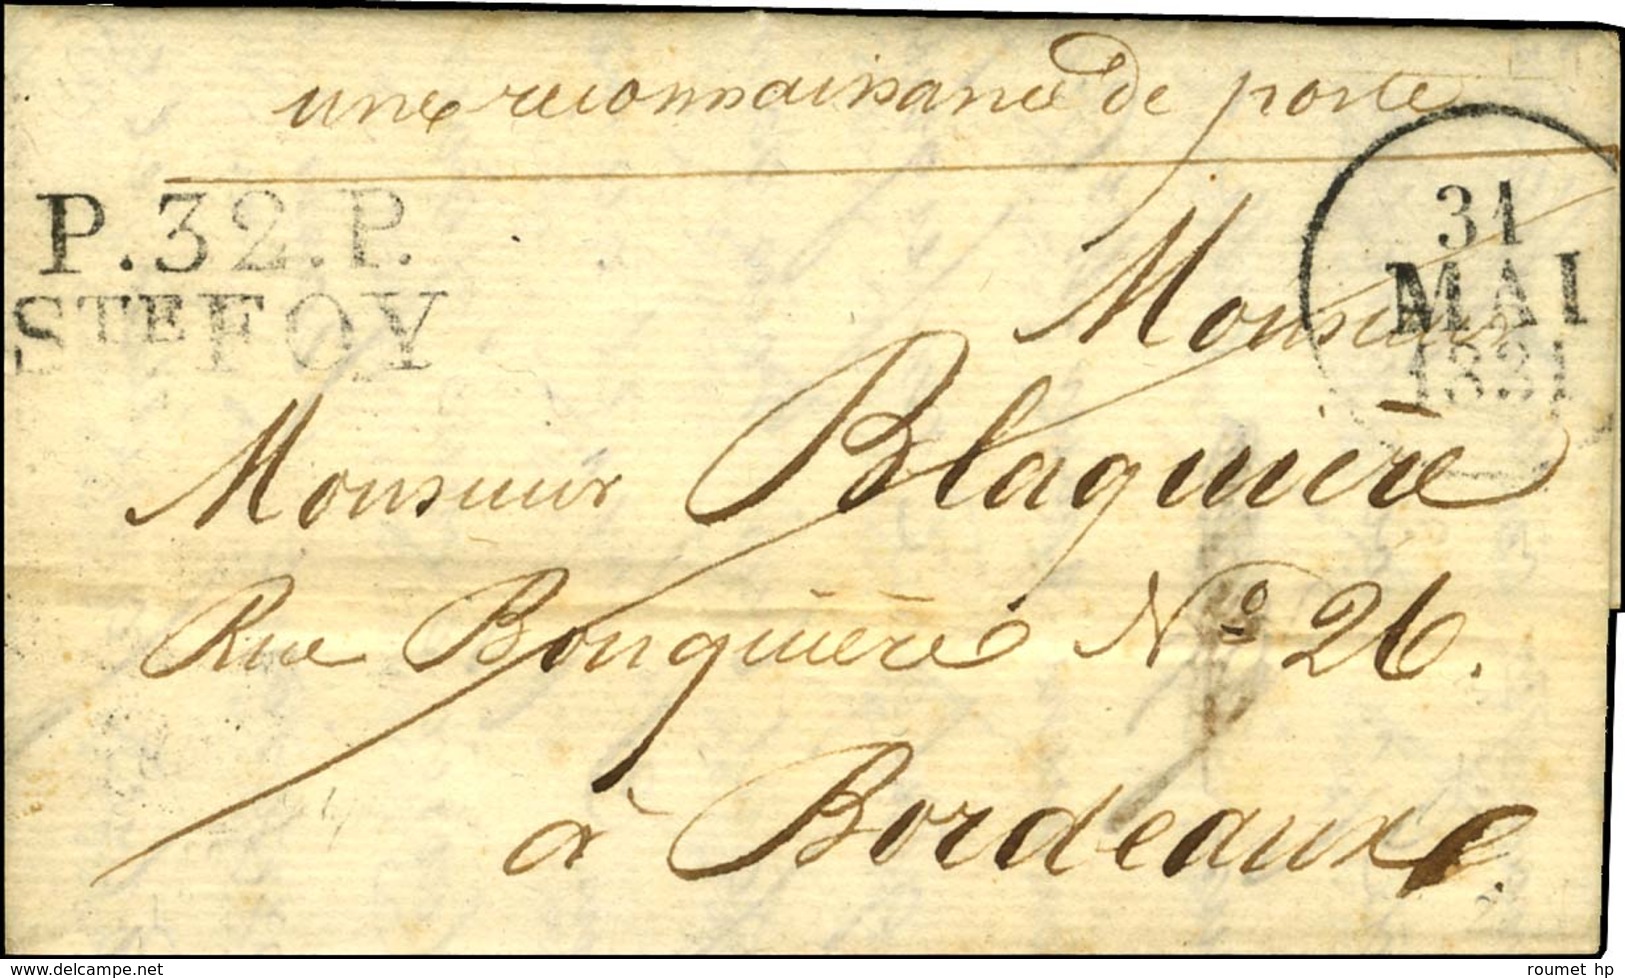 une reconnaissance de poste
P.32.P.
STE FOY
31
MAI
1831
Monsieur
Monsieur Blaquière
Rue Bouquière Nº 26.
à Bordeaux.
delcampe.net
roumet hp